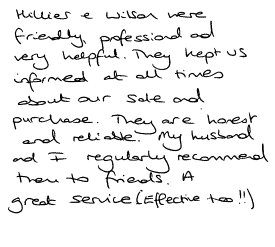 Hillier & Wilson were
friendly, professional and
very helpful. They kept us
informed at all times
about our sale and
purchase. They are honest
and reliable. My husband
and I regularly recommend
them to friends. A
great service (Effective too!!)